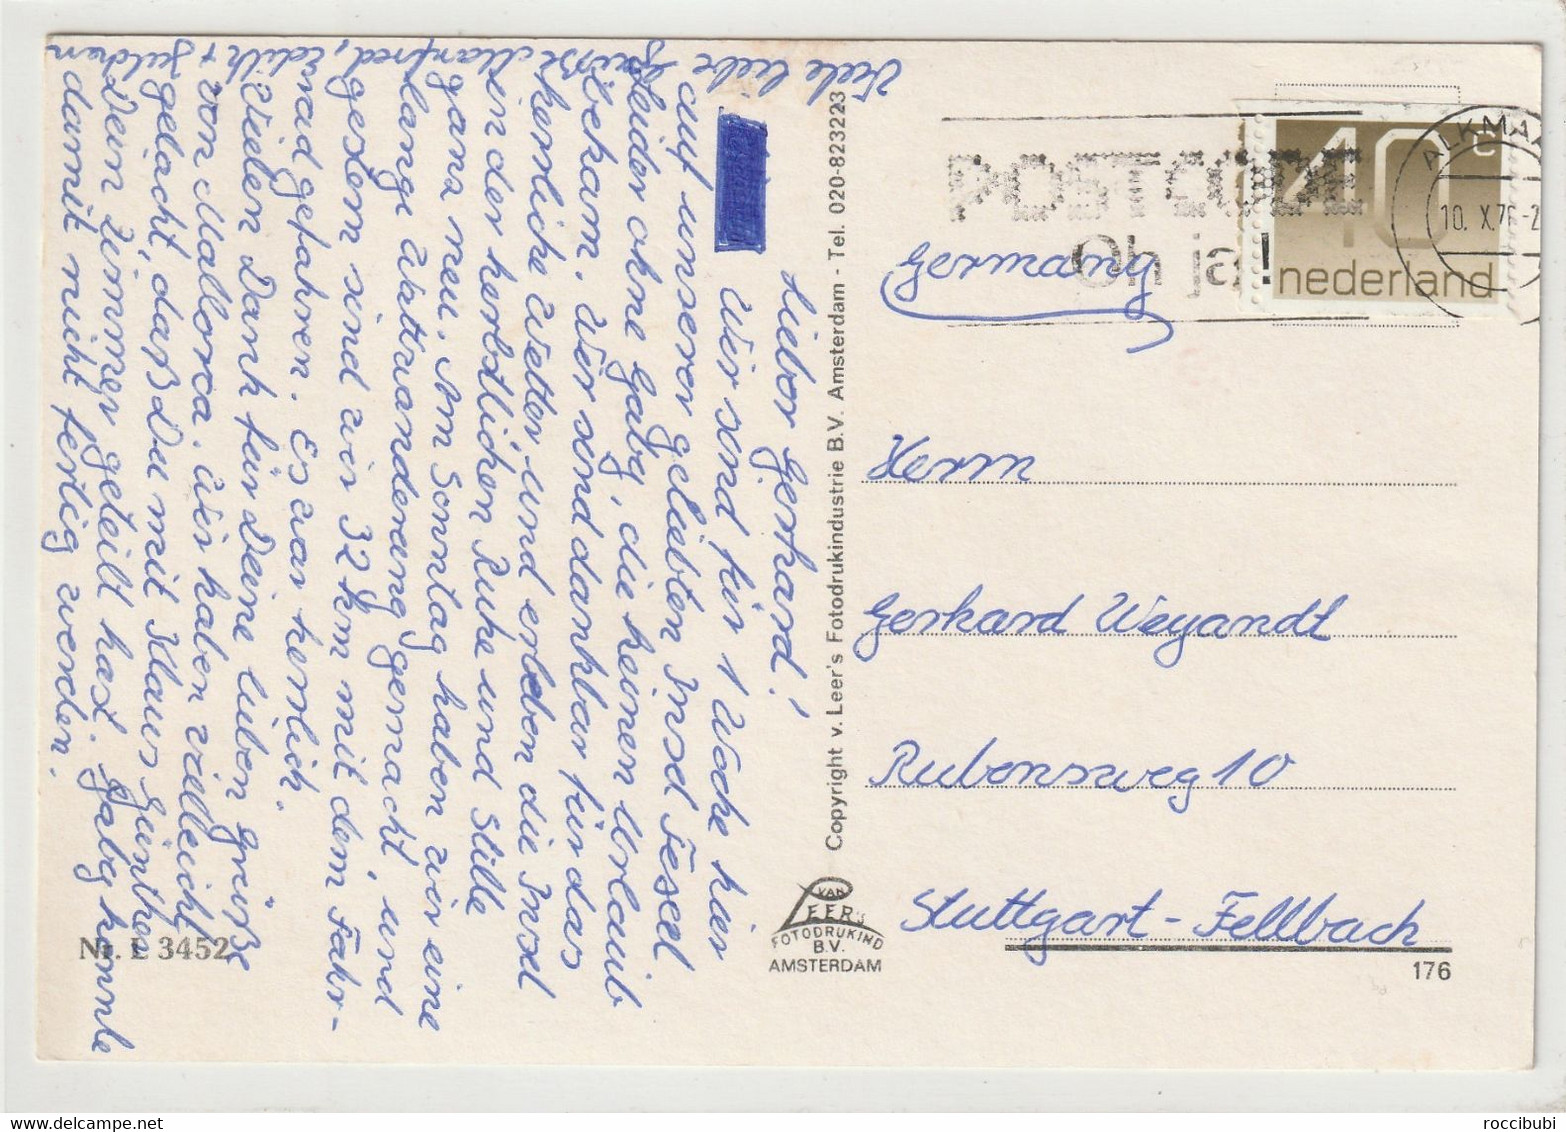 Lieber Gerhard!
Wir sind für 1 Woche hier
auf unserer geliebten Insel Texel
Leider ohne Gaby, die keinen Urlaub
bekam. Wir sind dankbar für das
herrliche Wetter und erleben die Insel
in der herbstlichen Ruhe und Stille
ganz neu. Am Sonntag haben wir eine
lange Wattwanderung gemacht, und
gestern sind wir 32 km mit dem Fahr-
rad gefahren. Es war herrlich.
Vielen Dank für Deine lieben Grüße
von Mallorca. Wir haben vielleicht
gelacht, daß Du mit Klaus Günther
Dein Zimmer geteilt hast. Gaby konnte
damit nicht fertig werden.
Viele liebe
Grüße Manfred,
Edith +
Copyright v. Leer's Fotodrukindustrie B.V. Amsterdam - Tel. 020-823223
VAN
LEER'S
FOTODRUKIND
B.V.
AMSTERDAM
Nr. L 3452
POSTCODE
Oh ja!
40 c
nederland
ALKMA
10. X.78-2
Germany
Herrn
Gerhard Weyandt
Rubensweg 10
Stuttgart-Fellbach
176
roccibubi